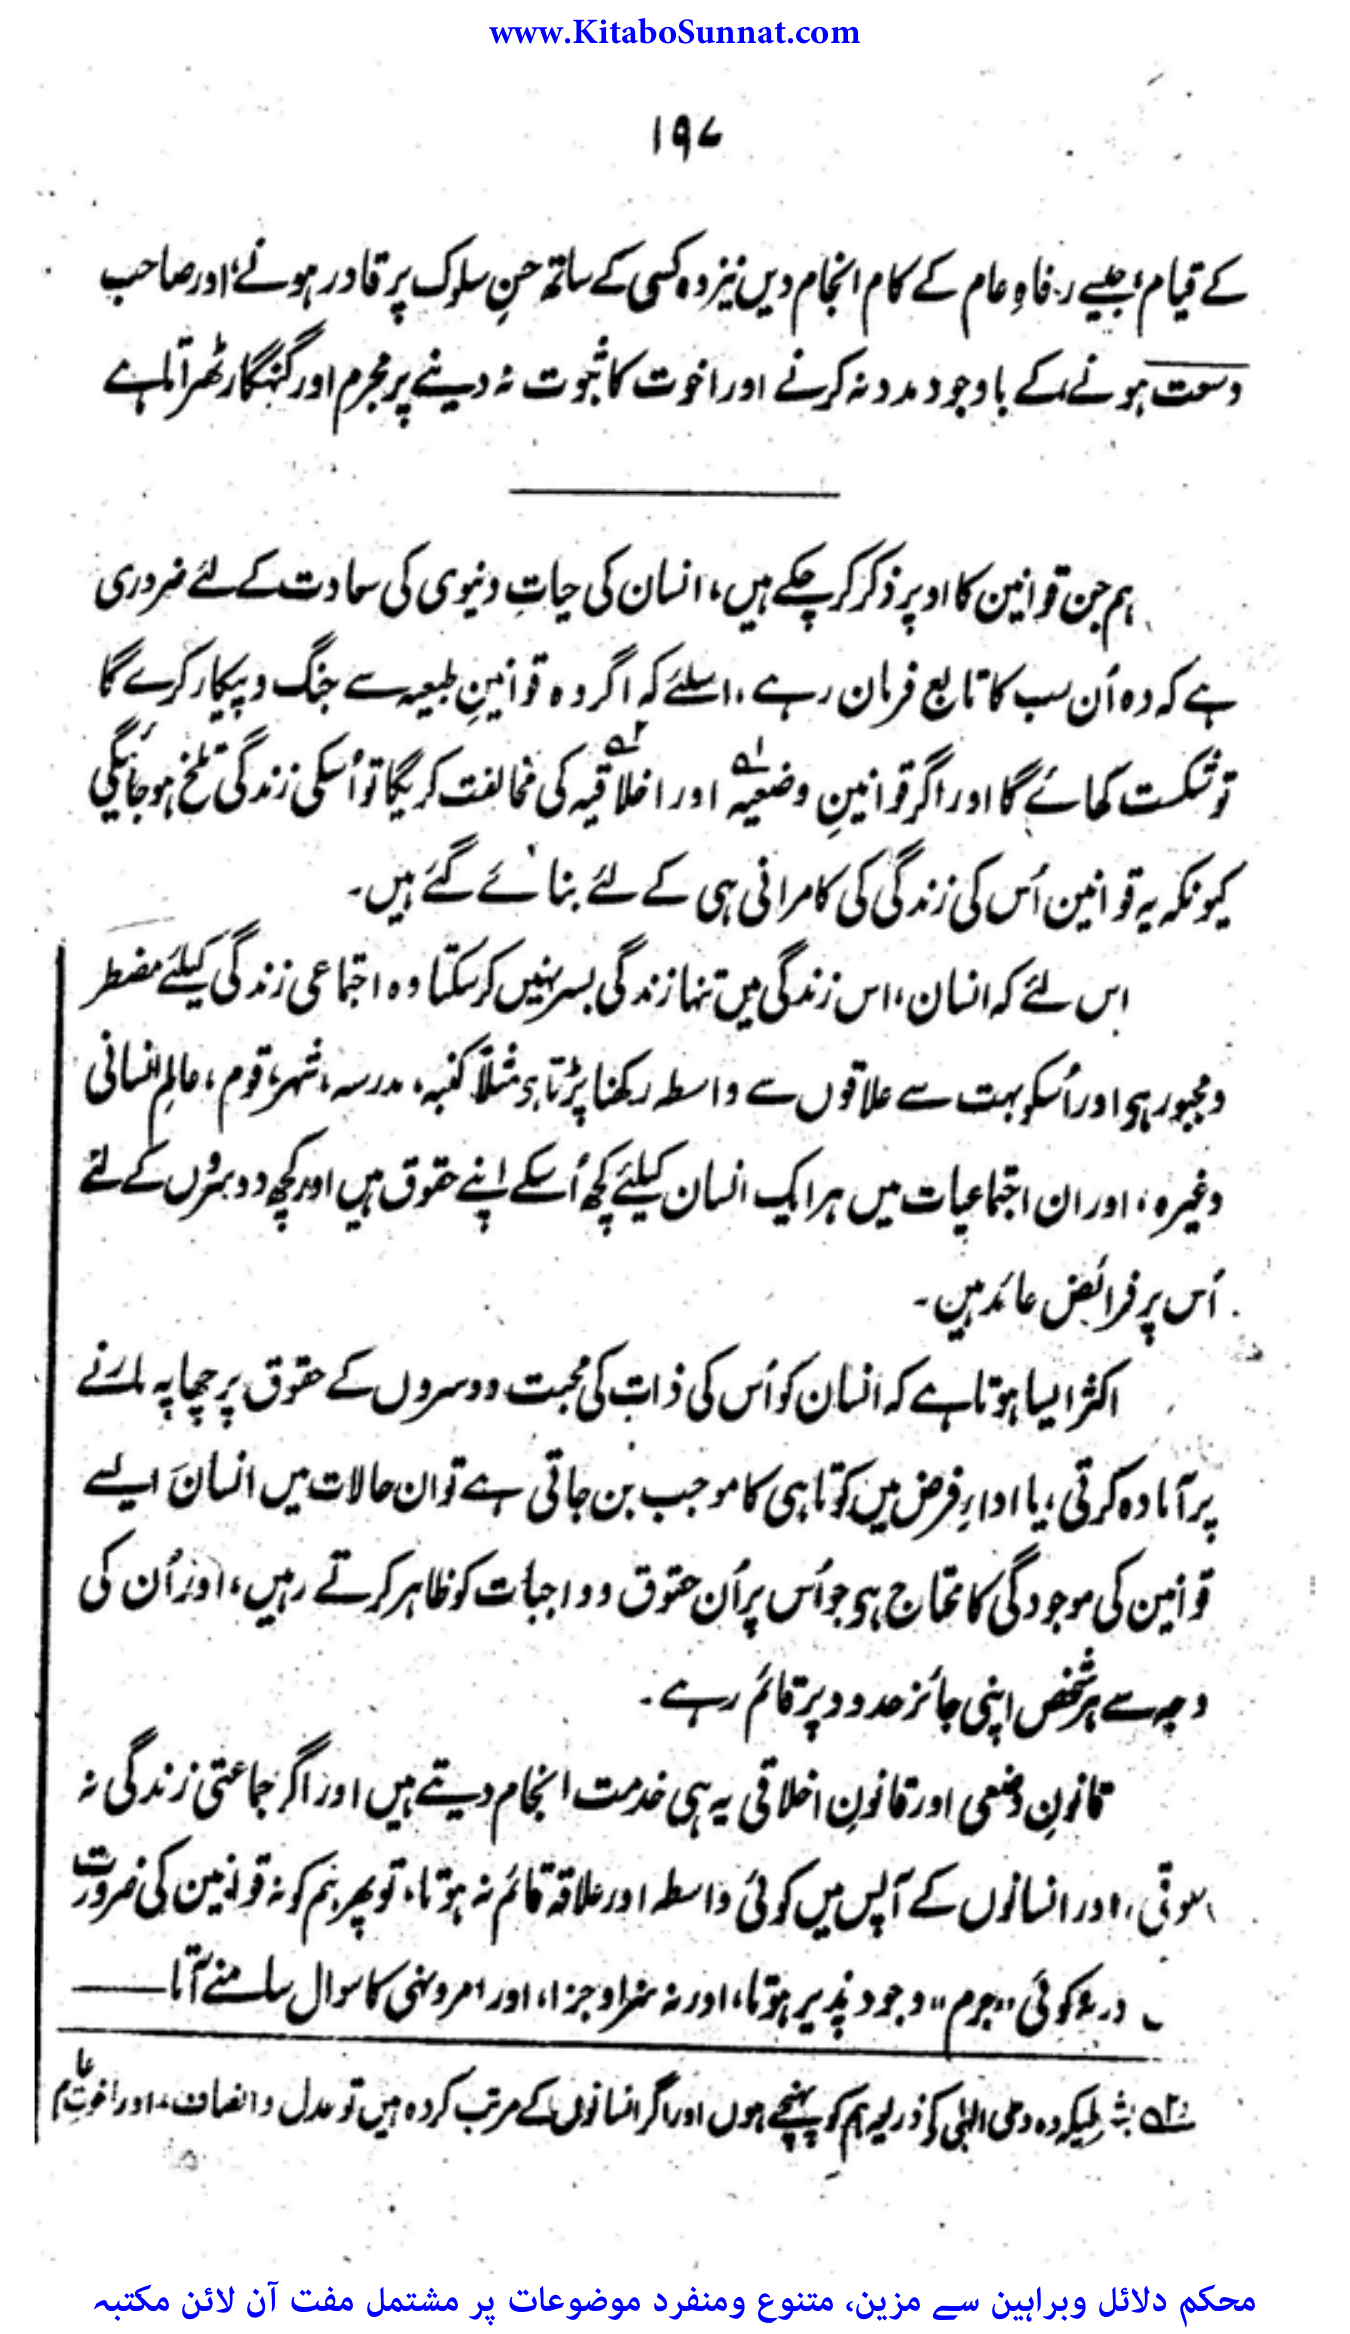 www.KitaboSunnat.com
۱۹۷
کے قیام، جیسے رفاہِ عام کے کام انجام دیں نیز وہ کسی کے ساتھ حسنِ سلوک پر قادر ہونے، اور صاحب
وسعت ہونے کے باوجود مدد نہ کرنے اور اخوت کا ثبوت نہ دینے پر مجرم اور گنہگار ٹھراتا ہے
ہم جن قوانین کا اوپر ذکر کر چکے ہیں، انسان کی حیاتِ دنیوی کی سعادت کے لئے ضروری
ہے کہ وہ اُن سب کا تابع فرمان رہے، اسلئے کہ اگر وہ قوانینِ طبیعہ سے جنگ و پیکار کرے گا
تو شکست کھائے گا اور اگر قوانینِ وضعیہ ۱؎ اور اخلاقیہ ۲؎ کی مخالفت کریگا تو اُسکی زندگی تلخ ہوجائیگی
کیونکہ یہ قوانین اُس کی زندگی کی کامرانی ہی کے لئے بنائے گئے ہیں۔
اس لئے کہ انسان، اس زندگی میں تنہا زندگی بسر نہیں کرسکتا وہ اجتماعی زندگی کیلئے مضطر
و مجبور ہی اور اُسکو بہت سے علاقوں سے واسطہ رکھنا پڑتا ہی مثلاً کنبہ، مدرسہ، شہر، قوم، عالمِ انسانی
وغیرہ، اور ان اجتماعیات میں ہر ایک انسان کیلئے کچھ اُسکے اپنے حقوق ہیں اور کچھ دوسروں کے لئے
اُس پر فرائض عائد ہیں۔
اکثر ایسا ہوتا ہے کہ انسان کو اُس کی ذات کی محبت دوسروں کے حقوق پر چھاپہ مارنے
پر آمادہ کرتی، یا اداءِ فرض میں کوتاہی کا موجب بن جاتی ہے تو ان حالات میں انسان ایسے
قوانین کی موجودگی کا محتاج ہی جو اُس پر اُن حقوق و واجبات کو ظاہر کرتے رہیں، اور اُن کی
وجہ سے ہر شخص اپنی جائز حدود پر قائم رہے۔
قانونِ وضعی اور قانونِ اخلاقی یہ ہی خدمت انجام دیتے ہیں اور اگر جماعتی زندگی نہ
ہوتی، اور انسانوں کے آپس میں کوئی واسطہ اور علاقہ قائم نہ ہوتا، تو پھر ہم کو نہ قوانین کی ضرورت
کوئی "جرم" وجود پذیر ہوتا، اور نہ سزا و جزا، اور امر و نہی کا سوال سامنے آتا
۱؎ ۲؎ بشرطیکہ وہ وحی الٰہی کے ذریعہ ہم کو پہنچے ہوں اور اگر انسانوں کے مرتب کردہ ہیں تو عدل و انصاف، اور اخوتِ عام
محکم دلائل وبراہین سے مزین، متنوع ومنفرد موضوعات پر مشتمل مفت آن لائن مکتبہ